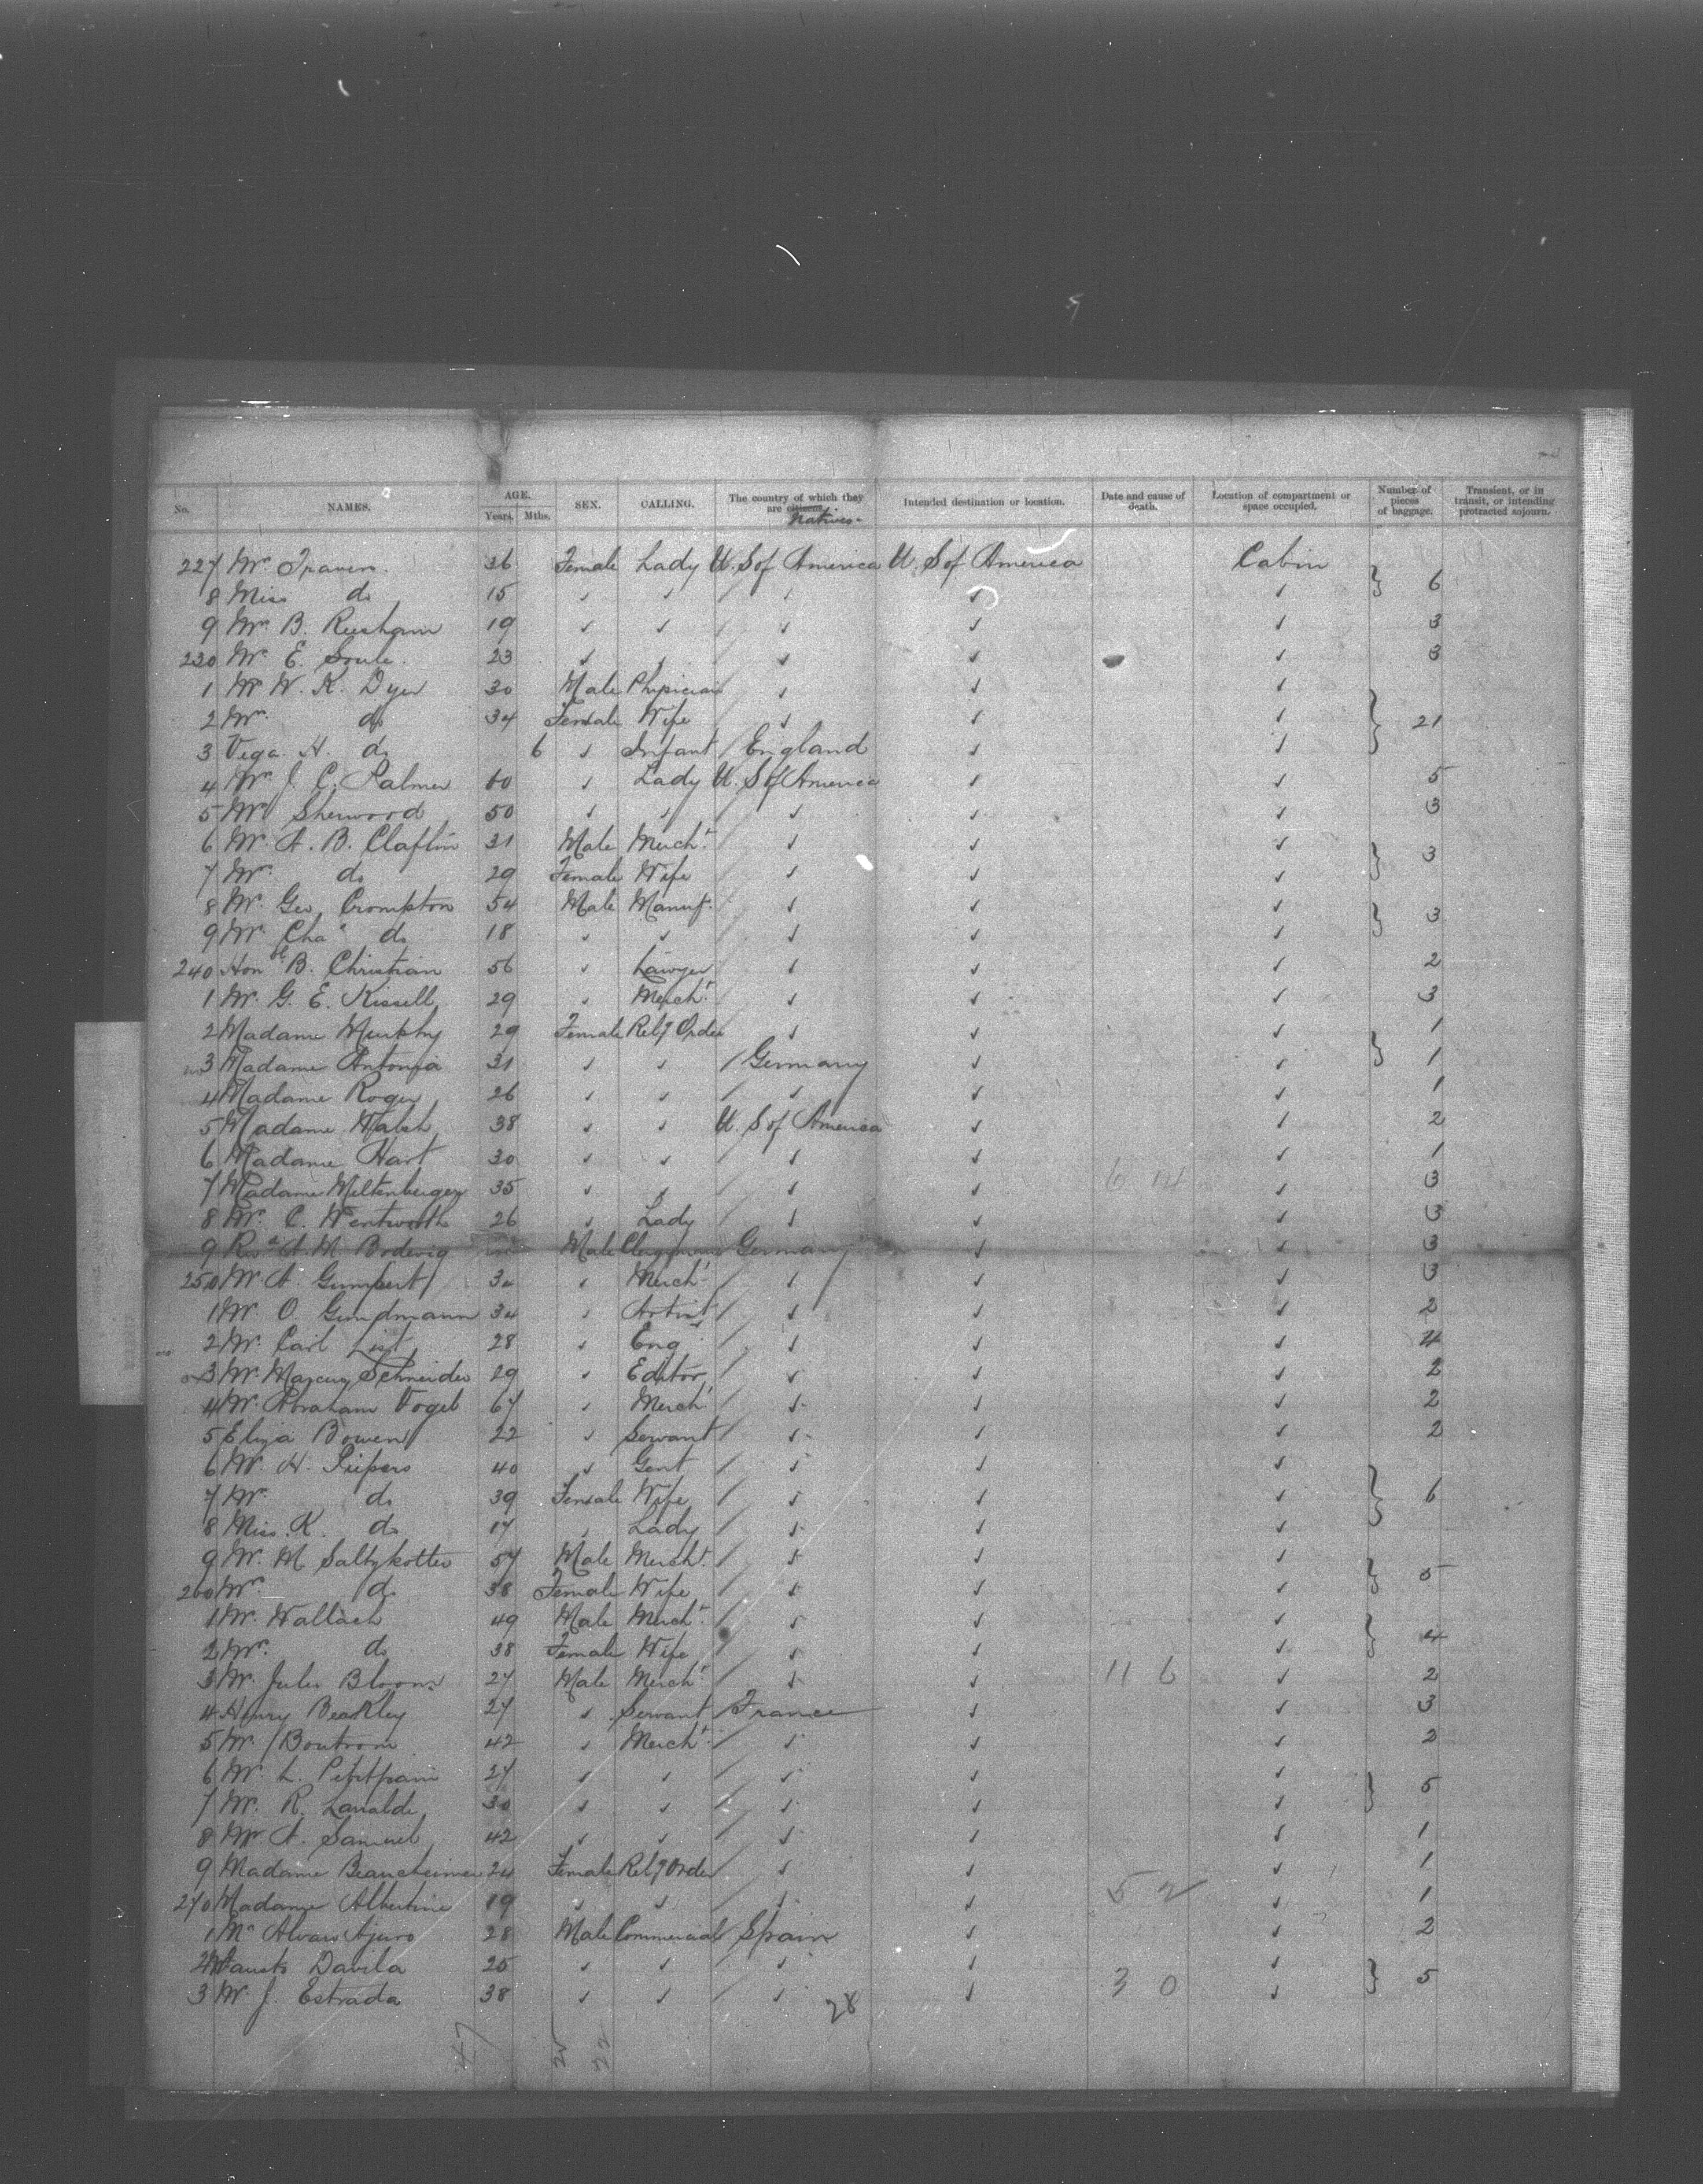 No. NAMES. AGE. Years. Mths. SEX. CALLING. The country of which they are citizens. Natives. Intended destination or location. Date and cause of death. Location of compartment or space occupied. Number of pieces of baggage. Transient, or in transit, or intending protracted sojourn.
227 Mrs. Travers. 36 Female Lady U. S of America U. S of America Cabin
8 Miss do 15 ✓ ✓ / ✓ ✓ ✓ } 6
9 Mrs. B. 19 ✓ ✓ / ✓ ✓ ✓ 3
230 Mrs. E. Soule. 23 ✓ ✓ / ✓ ✓ ✓ 3
1 Mr W. K. Dyer 30 Male Physician ✓ ✓ ✓
2 Mrs. do 34 Female Wife / ✓ ✓ ✓ } 21
3 Vega. H. do 6 ✓ Infant / England ✓ ✓
4 Mrs. J. C. Palmer 60 ✓ Lady U. S of America ✓ ✓ 5
5 Mrs Sherwood 50 ✓ ✓ / ✓ ✓ ✓ 3
6 Mr. A. B. Claflin 31 Male Mercht. / ✓ ✓ ✓
7 Mrs. do 29 Female Wife / ✓ ✓ ✓ } 3
8 Mr. Geo. Crompton 54 Male Manuf. / ✓ ✓ ✓
9 Mr. Chas do 18 ✓ ✓ / ✓ ✓ ✓ } 3
240 Honble B. Christian 56 ✓ Lawyer / ✓ ✓ ✓ 2
1 Mr. G. E. Kissell 29 ✓ Mercht. / ✓ ✓ ✓ 3
2 Madame Murphy 29 Female Relg Order ✓ ✓ ✓ 1
3 Madame Antonia 31 ✓ ✓ / Germany ✓ ✓ } 1
4 Madame Roger 26 ✓ ✓ / ✓ ✓ ✓ 1
5 Madame Walsh 38 ✓ ✓ U. S of America ✓ ✓ 2
6 Madame Hart 30 ✓ ✓ / ✓ ✓ ✓ 1
7 Madame Miltenberger 35 ✓ ✓ / ✓ ✓ 6 14 ✓ 3
8 Mrs. C. Wentworth 26 ✓ Lady / ✓ ✓ ✓ 3
9 Revd A. M. Bodewig Male Clergyman Germany ✓ ✓ 3
250 Mr. A. Gumpert 34 ✓ Mercht. / ✓ ✓ ✓ 3
1 Mr. O. 34 ✓ Artist / ✓ ✓ ✓ 2
2 Mr. Carl List 28 ✓ Engr / ✓ ✓ ✓ 4
3 Mr. Schneider 29 ✓ Editor / ✓ ✓ ✓ 2
4 Mr. Abraham Vogel 67 ✓ Mercht / ✓ ✓ ✓ 2
5 Eliza Bowen 22 ✓ Servant / ✓ ✓ ✓ 2
6 Mr. H. Piepers 40 ✓ Gent / ✓ ✓ ✓
7 Mrs. do 39 Female Wife / ✓ ✓ ✓ } 6
8 Miss. K. do 17 ✓ Lady / ✓ ✓ ✓
9 Mr. M 57 Male Mercht. / ✓ ✓ ✓
260 Mrs. do 38 Female Wife / ✓ ✓ ✓ } 5
1 Mr. Wallach 49 Male Mercht. / ✓ ✓ ✓
2 Mrs. do 38 Female Wife / ✓ ✓ ✓ } 4
3 Mr. Jules Bloom 27 Male Mercht. / ✓ ✓ 11 6 ✓ 2
4 Henry Beakley 27 ✓ Servant / France ✓ ✓ 3
5 Mr. 42 ✓ Mercht. / ✓ ✓ ✓ 2
6 Mr. L. Petitpain 27 ✓ ✓ / ✓ ✓ ✓
7 Mr. R. Lanalde 30 ✓ ✓ / ✓ ✓ ✓ } 5
8 Mr A. Samuel 42 ✓ ✓ / ✓ ✓ ✓ 1
9 Madame 24 Female Relg Order / ✓ ✓ ✓ 1
270 Madame Albertine 19 ✓ ✓ / ✓ ✓ 5 2 ✓ 1
1 Mr Alvaro 28 Male Commercial / Spain ✓ ✓ 2
2 Davila 25 ✓ ✓ / ✓ ✓ ✓
3 Mr. J. Estrada 38 ✓ ✓ / ✓ ✓ 3 0 ✓ } 5
28
47 22